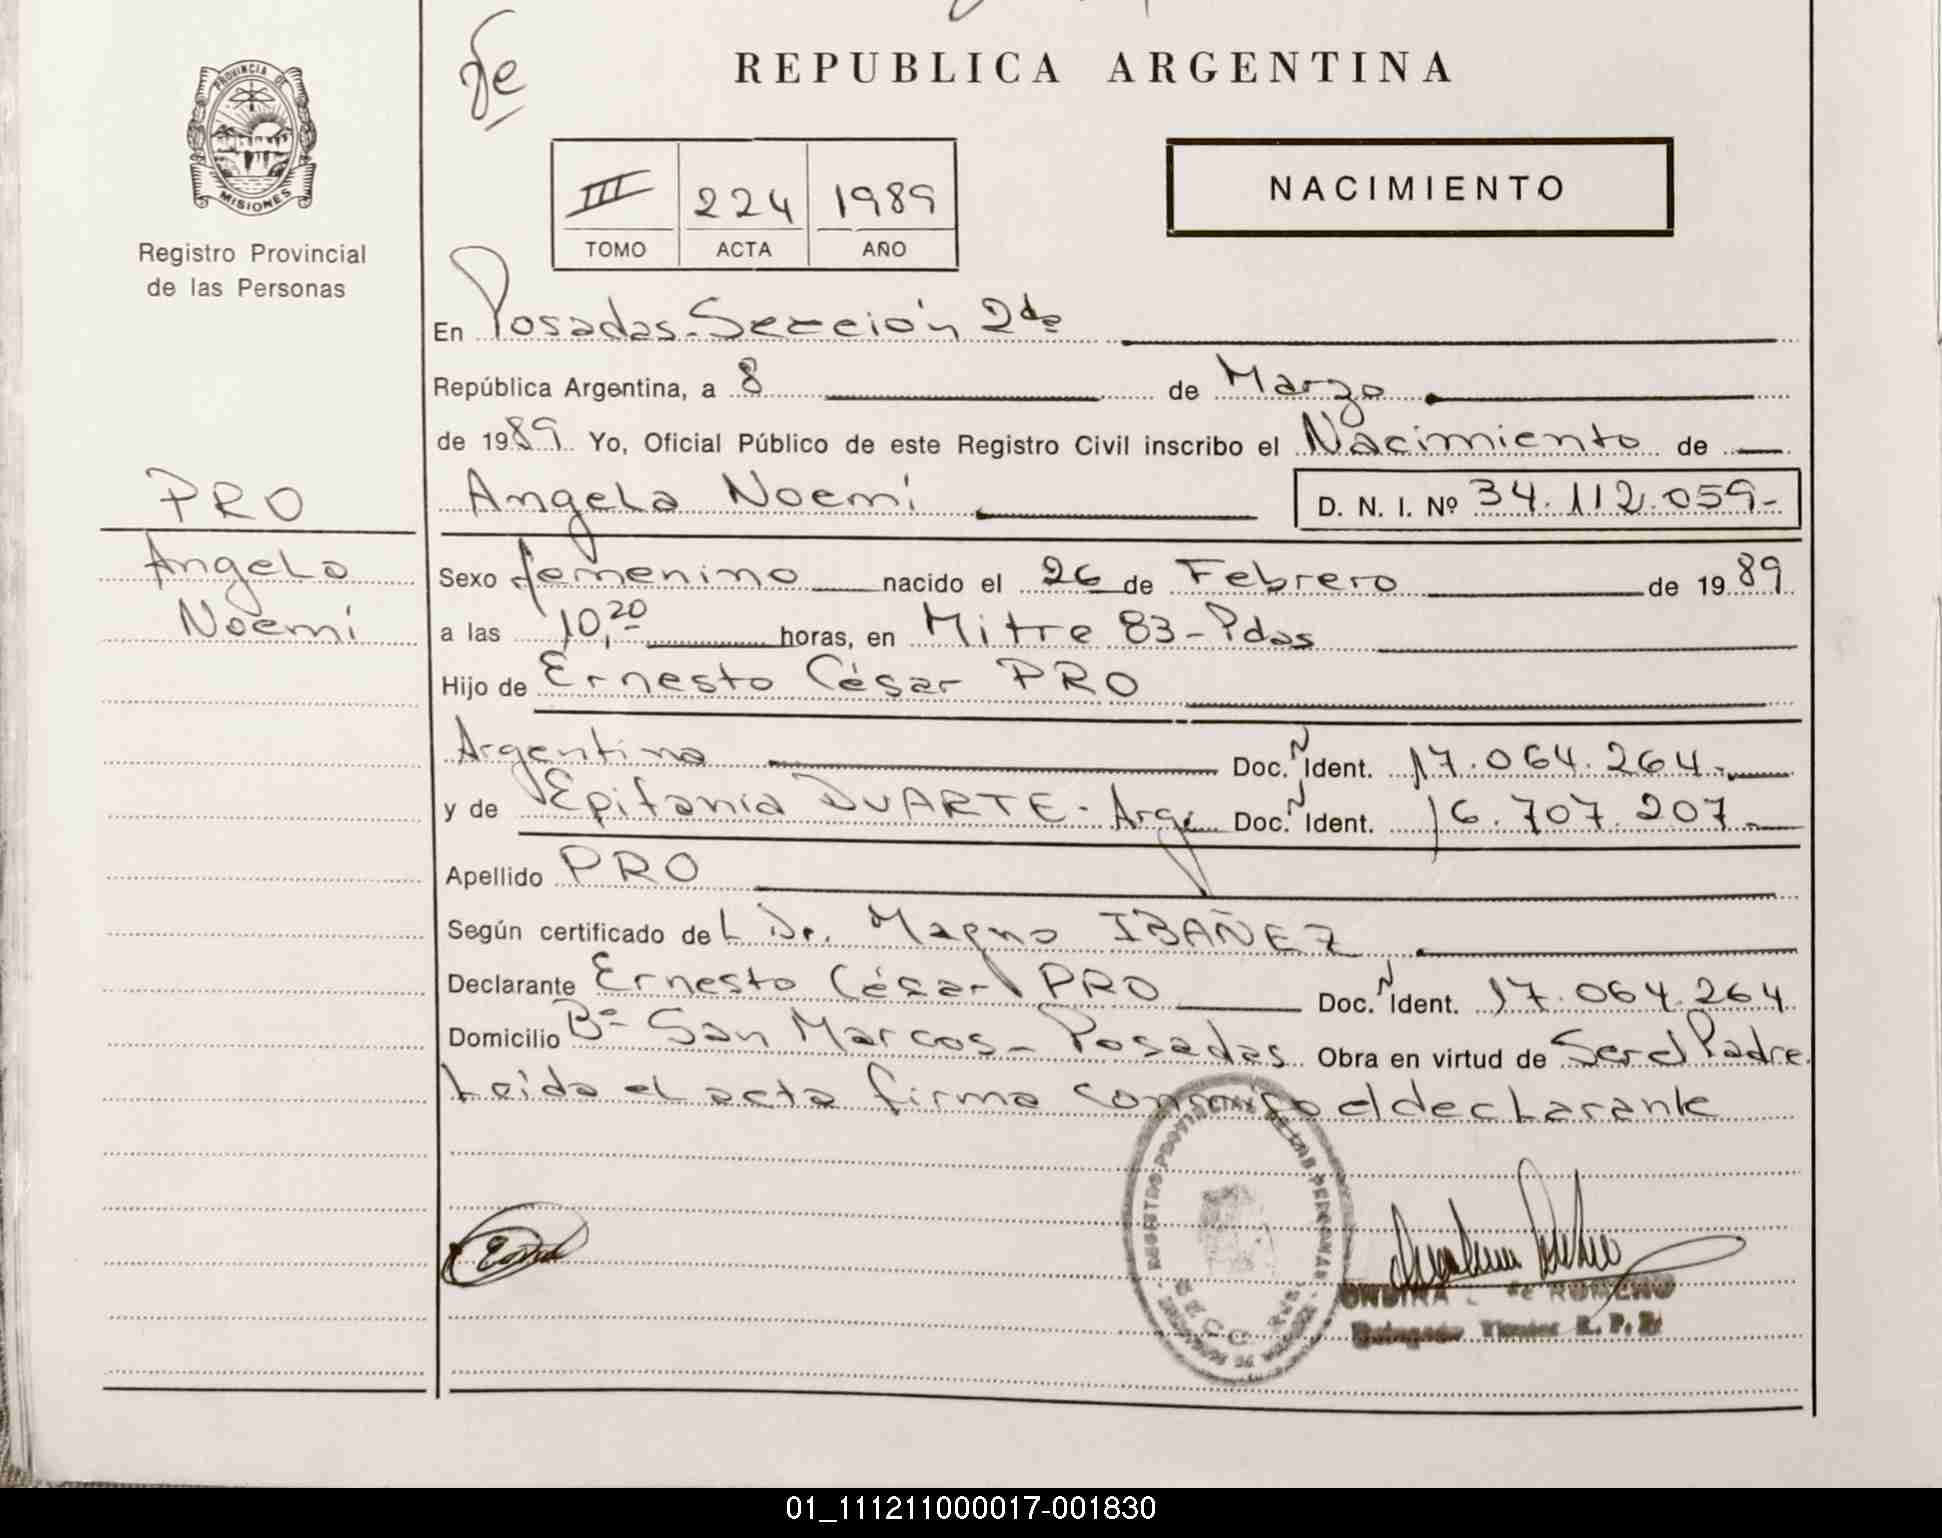 fe
REPUBLICA ARGENTINA
PROVINCIA DE
MISIONES
Registro Provincial
de las Personas
III 224 1989
TOMO ACTA AÑO
NACIMIENTO
En Posadas-Sección 2da
República Argentina, a 8 de Marzo
de 1989. Yo, Oficial Público de este Registro Civil inscribo el Nacimiento de
PRO
Angela Noemi D. N. I. Nº 34.112.059-
Angela
Noemi
Sexo femenino nacido el 26 de Febrero de 1989
a las 10,20 horas, en Mitre 83-Pdas
Hijo de Ernesto César PRO
Argentina Doc. N Ident. 17.064.264.-
y de Epifania DUARTE- Arg. Doc. N Ident. 16.707.207.-
Apellido PRO
Según certificado del Dr. Magno IBAÑEZ
Declarante Ernesto César PRO Doc. N Ident. 17.064.264
Domicilio Bº San Marcos- Posadas Obra en virtud de Ser el Padre.
Leida el acta firma conmigo el declarante
REGISTRO PROVINCIAL DE LAS PERSONAS
SECC.
ONDINA ROMERO
R. P. P.
01_111211000017-001830